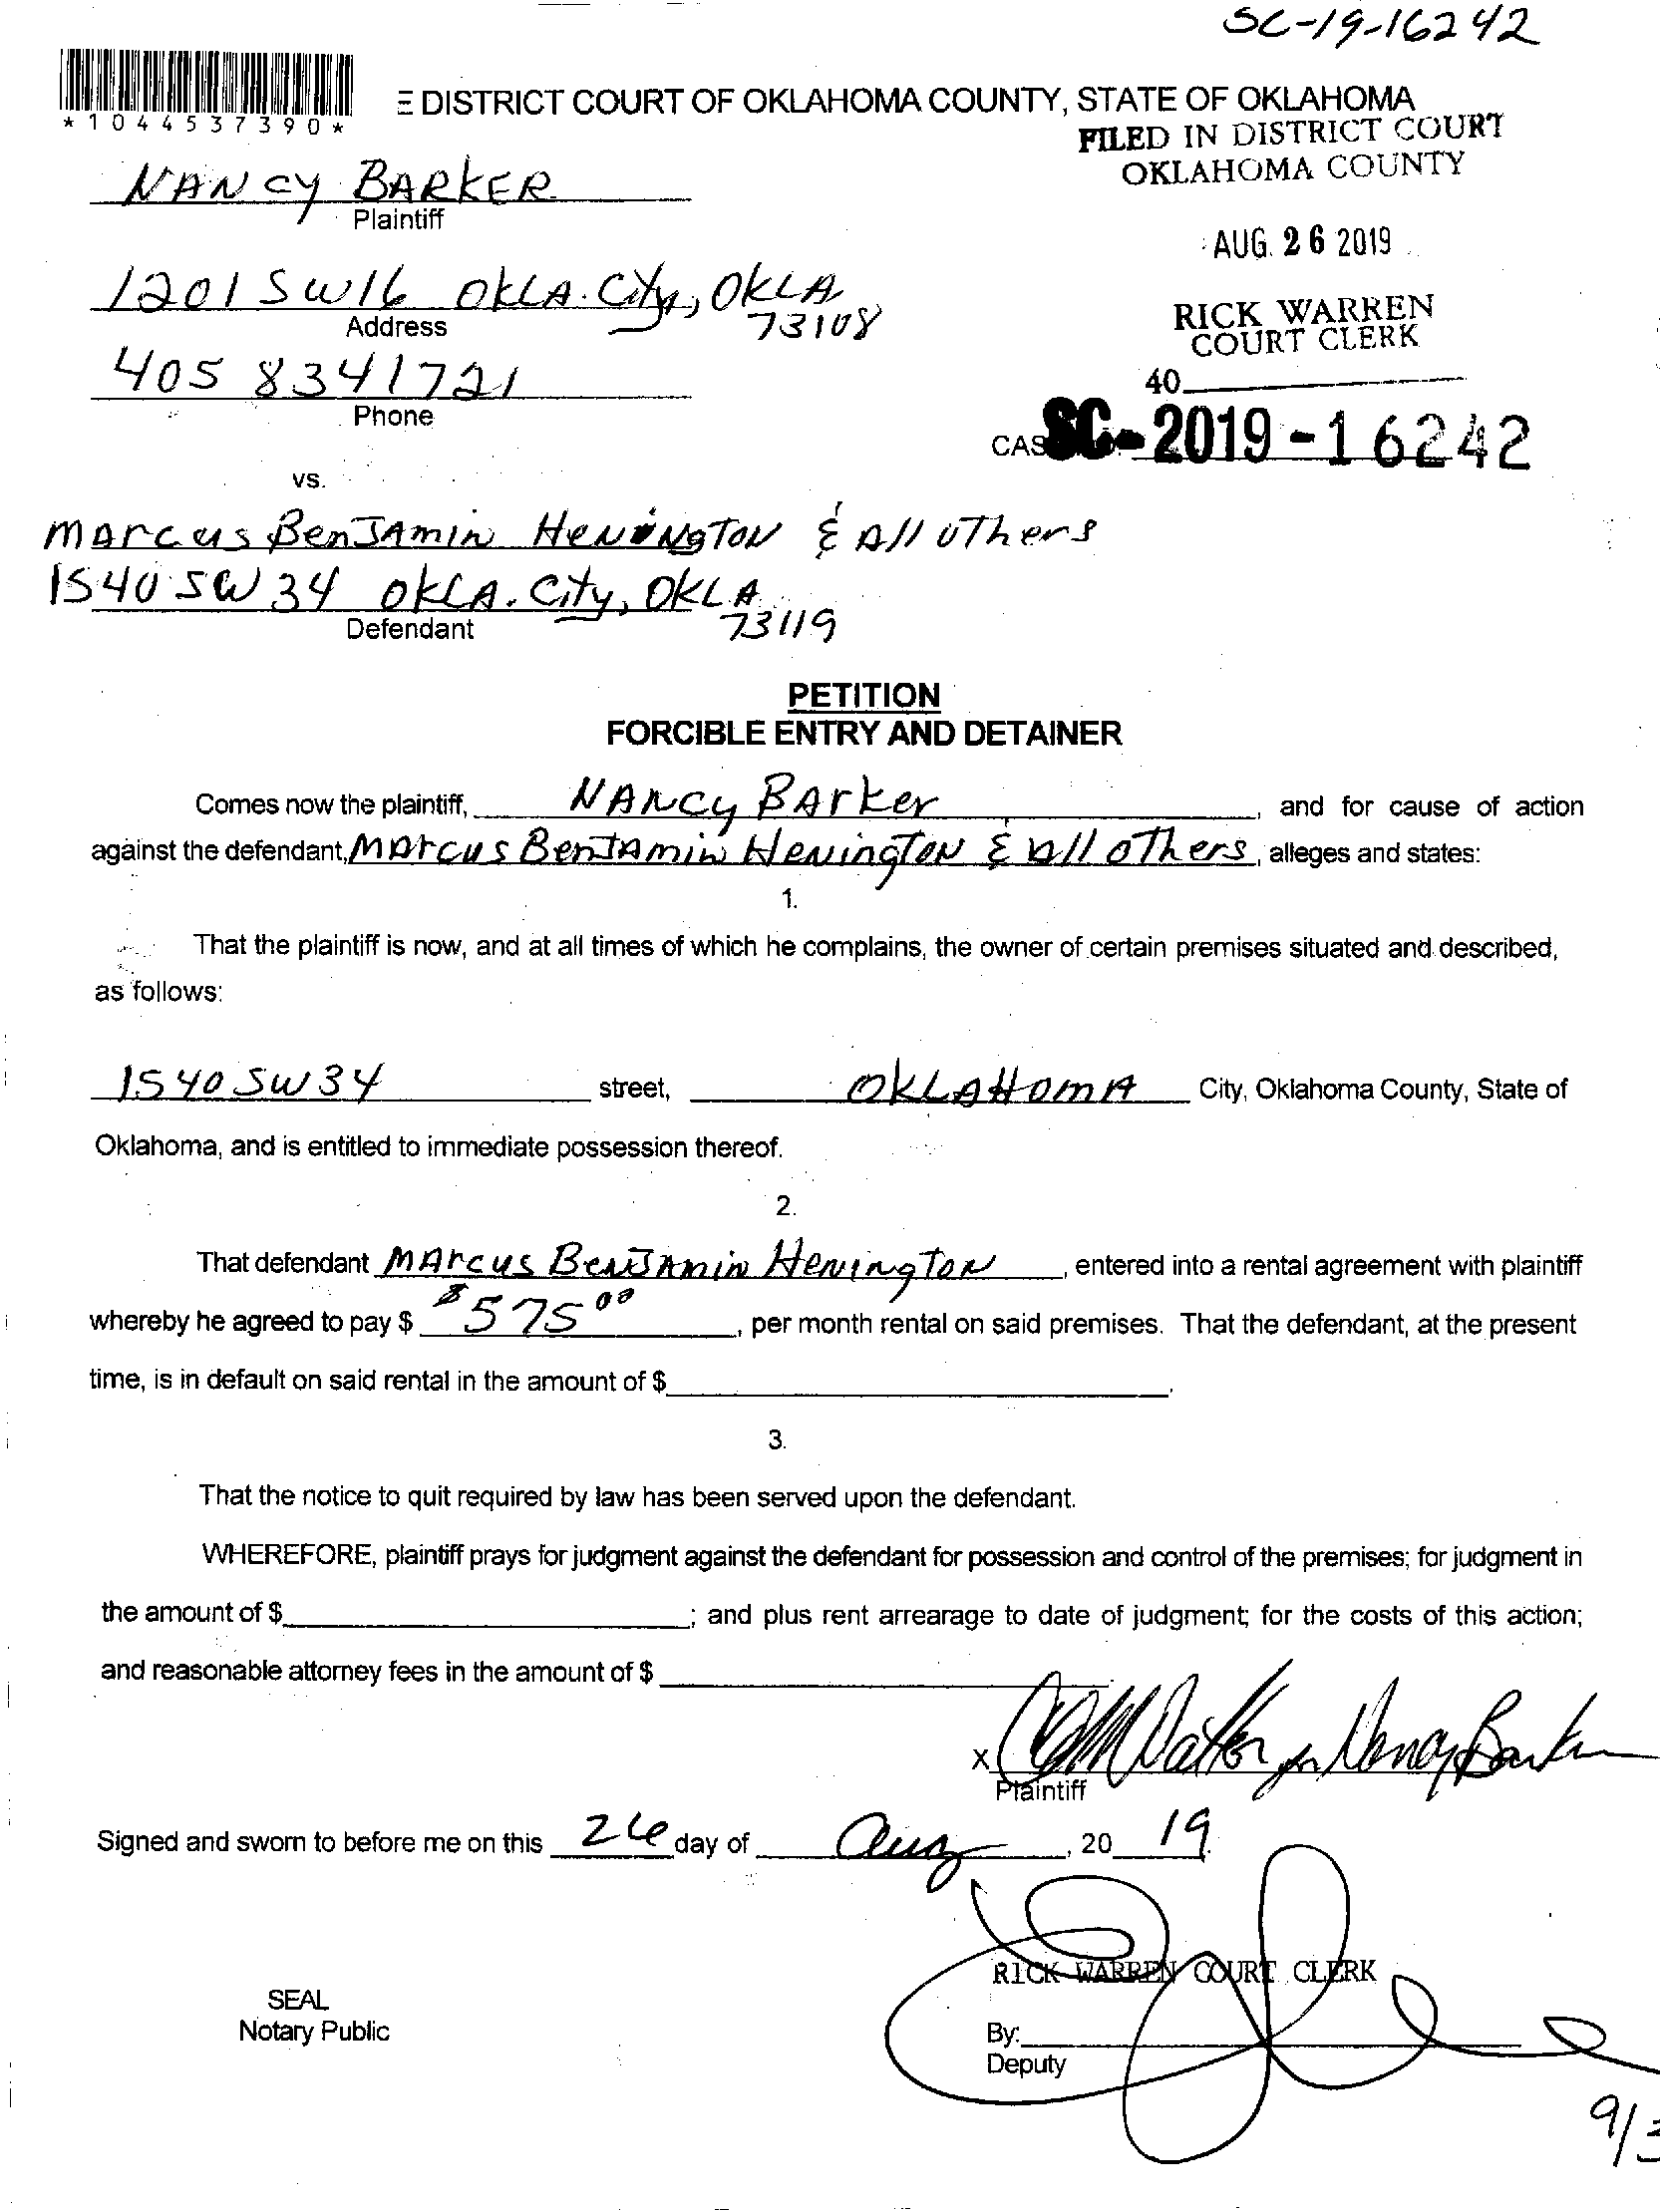 SC-19-16242
*1044537390*
E DISTRICT COURT OF OKLAHOMA COUNTY, STATE OF OKLAHOMA
FILED IN DISTRICT COURT
OKLAHOMA COUNTY
NANCY BARKER
Plaintiff
AUG. 26 2019
1201 SW16 OKLA. City, OKLA
73108
Address
RICK WARREN
COURT CLERK
405 8341721
Phone
40
CAS SC-2019-16242
vs.
MArcus BenJAmin HeNiNgToN & All oThers
1540 SW 34 OKLA. City, OKLA
73119
Defendant
PETITION
FORCIBLE ENTRY AND DETAINER
Comes now the plaintiff, NANCy BArker, and for cause of action
against the defendant, MArcus BenJAmin HeningToN & All oThers, alleges and states:
1.
That the plaintiff is now, and at all times of which he complains, the owner of certain premises situated and described,
as follows:
1540 SW 34 street, OKLAHOMA City, Oklahoma County, State of
Oklahoma, and is entitled to immediate possession thereof.
2.
That defendant MArcus BenJAmin HeningToN, entered into a rental agreement with plaintiff
whereby he agreed to pay $ $575.00, per month rental on said premises. That the defendant, at the present
time, is in default on said rental in the amount of $.
3.
That the notice to quit required by law has been served upon the defendant.
WHEREFORE, plaintiff prays for judgment against the defendant for possession and control of the premises; for judgment in
the amount of $; and plus rent arrearage to date of judgment; for the costs of this action;
and reasonable attorney fees in the amount of $
x for Nancy Barker
Plaintiff
Signed and sworn to before me on this 26 day of Aug, 2019.
RICK WARREN COURT CLERK
SEAL
Notary Public
By:
Deputy
9/3